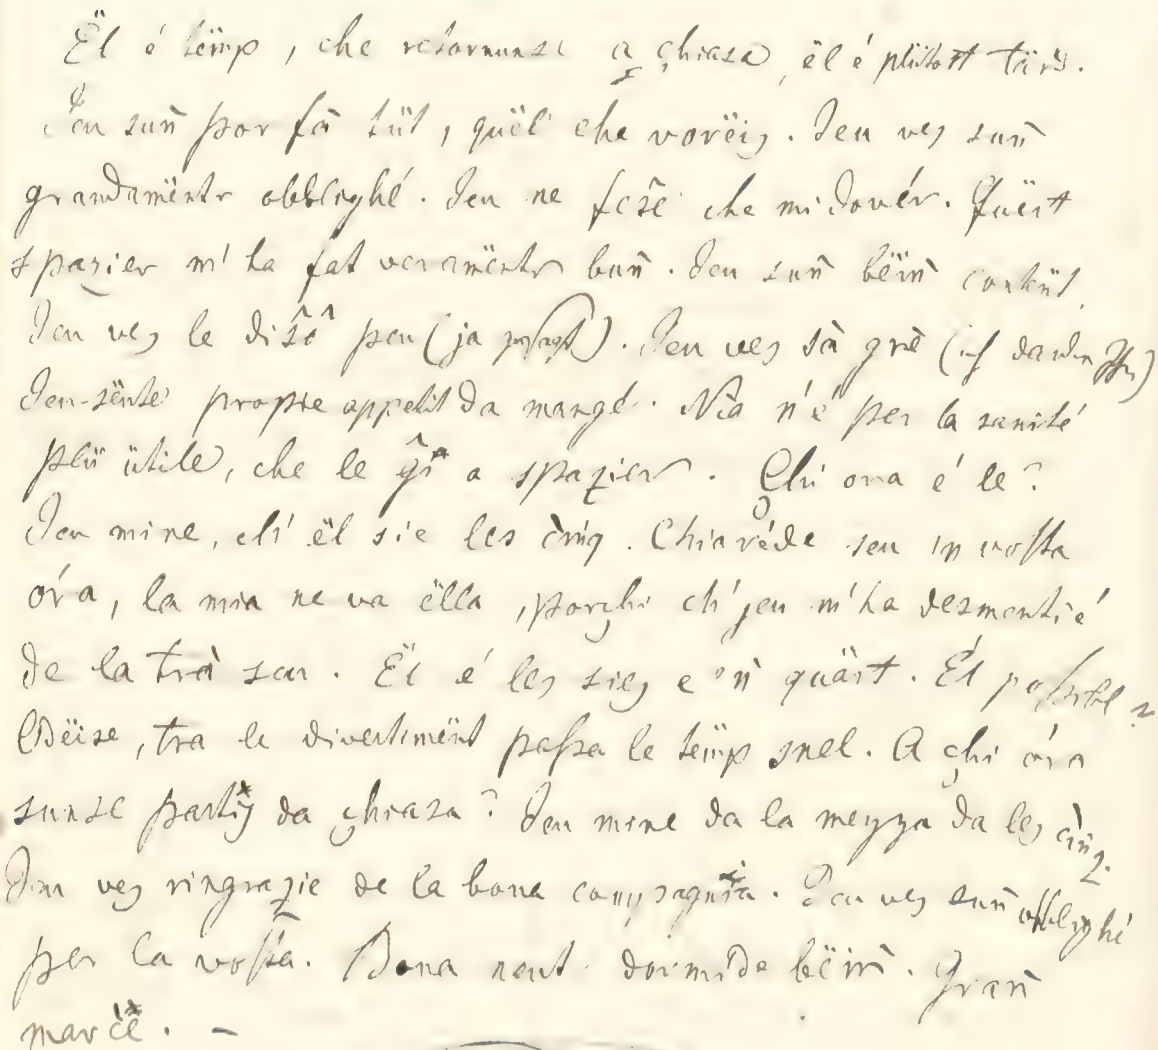 Ël é tëmp, che retornunse a chiasa, ël é plütost tärd.
Jeu suñ por fá tüt, quël che vorëis. Jeu ves suñ
grandamënter obblighé. Jeu ne fesê che mi dovér. Quëst
spazier m'ha fat veramënter buñ. Jeu suñ bëiñ contënt.
Jeu ves le disê peu (ja gesagt). Jeu ves sà gré (ich danke Ihnen)
Jeu sënte proprie appetit da mangé. Nia n'é per la sanité
plü ütile, che le gî a spazier. Chi ora é le?
Jeu mine, ch' ël sie les cinq. Chiaréde seu in vossa
óra, la mia ne va ëlla, porchi ch'jeu m'ha desmentié
de la trà seu. Ël é les sies e 'ñ quärt. Él possibel?
Odëise, tra le divertimënt passa le tëmp snel. A chi óra
sunse partis da chiasa? Jeu mine da la mezza da les cinq.
Jeu ves ringrazie de la bona compagnia. Jeu ves suñ obblighé
per la vossa. Bona neut. dormide bëiñ. Grañ
marcë. –